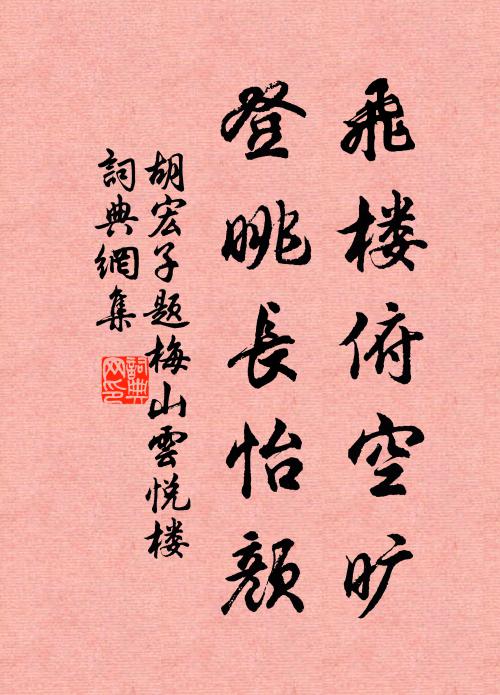 飛楼俯空旷
登眺長怡顔
胡宏子题梅山雲悦楼
詞典網集
詞典網印